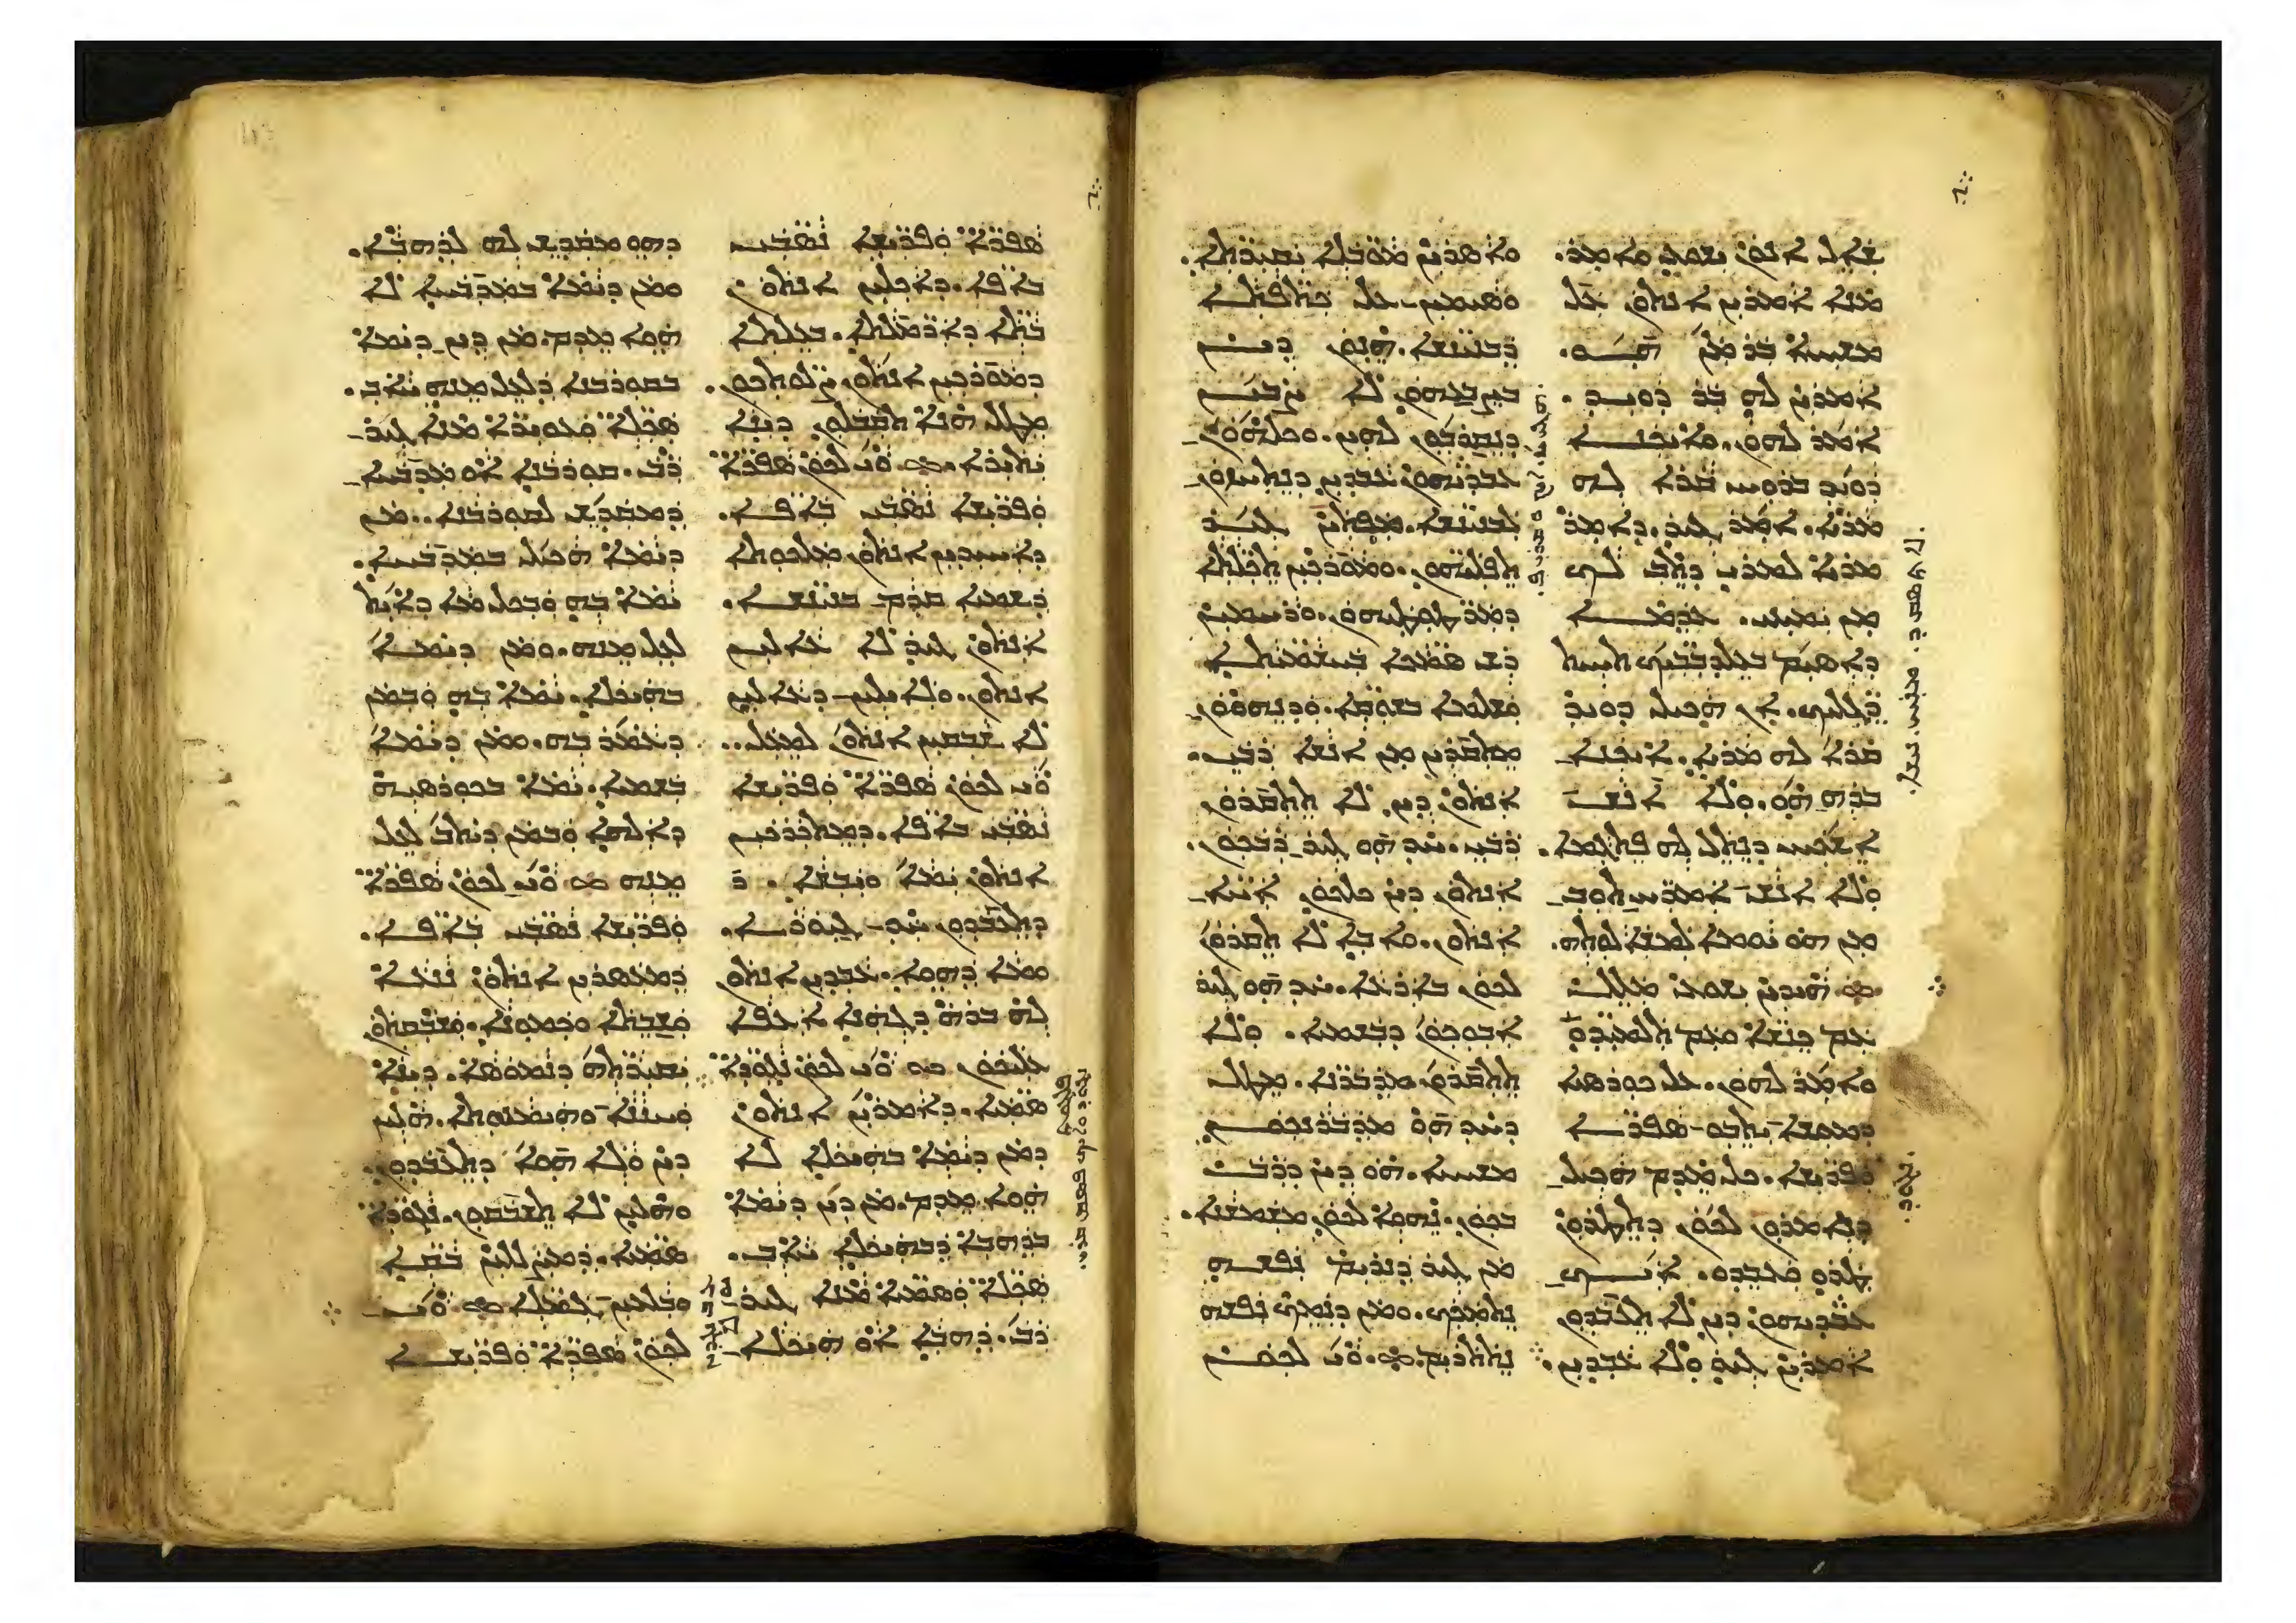 ܫܐܠ ܐܢܘܢ ܝܫܘܥ ܘܐܡܪ.
ܡܢܐ ܐܡܪܝܢ ܐܢܬܘܢ ܥܠ
ܡܫܝܚܐ ܒܪ ܡܢ ܗܘ.
ܐܡܪܝܢ ܠܗ ܒܪ ܕܘܝܕ.
ܐܡܪ ܠܗܘܢ. ܘܐܝܟܢܐ
ܕܘܝܕ ܒܪܘܚ ܩܪܐ ܠܗ
ܡܪܝܐ. ܐܡܪ ܓܝܪ. ܕܐܡܪ
ܡܪܝܐ ܠܡܪܝ ܕܬܒ ܠܟ
ܡܢ ܝܡܝܢܝ. ܥܕܡܐ
ܕܐܣܝܡ ܒܥܠܕܒܒܝܟ ܬܚܝܬ
ܪܓܠܝܟ. ܐܢ ܗܟܝܠ ܕܘܝܕ
ܩܪܐ ܠܗ ܡܪܝܐ. ܐܝܟܢܐ
ܒܪܗ ܗܘ. ܘܠܐ ܐܢܫ
ܐܫܟܚ ܕܢܬܠ ܠܗ ܦܬܓܡܐ.
ܘܠܐ ܐܢܫ ܐܡܪܚ ܬܘܒ
ܡܢ ܗܘ ܝܘܡܐ ܠܡܫܐܠܘܬܗ.
ܗܝܕܝܢ ܝܫܘܥ ܡܠܠ
ܥܡ ܟܢܫܐ ܘܥܡ ܬܠܡܝܕܘܗܝ
ܘܐܡܪ ܠܗܘܢ. ܥܠ ܟܘܪܣܝܐ
ܕܡܘܫܐ ܝܬܒܘ ܣܦܪܐ
ܘܦܪܝܫܐ. ܟܠ ܡܕܡ ܗܟܝܠ
ܕܢܐܡܪܘܢ ܠܟܘܢ ܕܬܛܪܘܢ
ܛܪܘ ܘܥܒܕܘ. ܐܝܟ
ܥܒܕܝܗܘܢ ܕܝܢ ܠܐ ܬܥܒܕܘܢ
ܐܡܪܝܢ ܓܝܪ ܘܠܐ ܥܒܕܝܢ.
ܘܐܣܪܝܢ ܡܘܒܠܐ ܝܩܝܪܬܐ.
ܘܣܝܡܝܢ ܥܠ ܟܬܦܬܐ
ܕܒܢܝܢܫܐ. ܗܢܘܢ ܕܝܢ
ܒܨܒܥܗܘܢ ܠܐ ܨܒܝܢ
ܕܢܩܪܒܘܢ ܠܗܝܢ. ܘܟܠܗܘܢ
ܥܒܕܝܗܘܢ ܥܒܕܝܢ ܕܢܬܚܙܘܢ
ܠܒܢܝܢܫܐ. ܡܦܬܝܢ ܓܝܪ
ܬܦܠܝܗܘܢ. ܘܡܘܪܟܝܢ ܬܟܠܬܐ
ܕܡܪܛܘܛܝܗܘܢ. ܘܪܚܡܝܢ
ܪܝܫ ܣܡܟܐ ܒܚܫܡܝܬܐ
ܘܫܠܡܐ ܒܫܘܩܐ. ܘܕܢܗܘܘܢ
ܡܬܩܪܝܢ ܡܢ ܐܢܫܐ ܪܒܝ.
ܐܢܬܘܢ ܕܝܢ ܠܐ ܬܬܩܪܘܢ
ܪܒܝ. ܚܕ ܗܘ ܓܝܪ ܪܒܟܘܢ.
ܐܢܬܘܢ ܕܝܢ ܟܠܟܘܢ ܐܚܐ
ܐܢܬܘܢ. ܘܐܒܐ ܠܐ ܬܩܪܘܢ
ܠܟܘܢ ܒܐܪܥܐ. ܚܕ ܗܘ ܓܝܪ
ܐܒܘܟܘܢ ܕܒܫܡܝܐ. ܘܠܐ
ܬܬܩܪܘܢ ܡܕܒܪܢܐ. ܡܛܠ
ܕܚܕ ܗܘ ܡܕܒܪܢܟܘܢ
ܡܫܝܚܐ. ܗܘ ܕܝܢ ܕܪܒ
ܒܟܘܢ. ܢܗܘܐ ܠܟܘܢ ܡܫܡܫܢܐ.
ܡܢ ܓܝܪ ܕܢܪܝܡ ܢܦܫܗ
ܢܬܡܟܟ. ܘܡܢ ܕܢܡܟ ܢܦܫܗ
ܢܬܬܪܝܡ. ܘܝ ܠܟܘܢ
ܣܦܪܐ ܘܦܪܝܫܐ ܢܣܒܝ
ܒܐܦܐ. ܕܐܟܠܝܢ ܐܢܬܘܢ
ܒܬܐ ܕܐܪܡܠܬܐ. ܒܥܠܬܐ
ܕܡܘܪܟܝܢ ܐܢܬܘܢ ܨܠܘܬܟܘܢ.
ܡܛܠ ܗܢܐ ܬܩܒܠܘܢ ܕܝܢܐ
ܝܬܝܪܐ. ܘܝ ܠܟܘܢ ܣܦܪܐ
ܘܦܪܝܫܐ ܢܣܒܝ ܒܐܦܐ.
ܕܐܚܝܕܝܢ ܐܢܬܘܢ ܡܠܟܘܬܐ
ܕܫܡܝܐ ܩܕܡ ܒܢܝܢܫܐ.
ܐܢܬܘܢ ܓܝܪ ܠܐ ܥܐܠܝܢ
ܐܢܬܘܢ. ܘܠܐܝܠܝܢ ܕܥܐܠܝܢ
ܠܐ ܫܒܩܝܢ ܐܢܬܘܢ ܠܡܥܠ..
ܘܝ ܠܟܘܢ ܣܦܪܐ ܘܦܪܝܫܐ
ܢܣܒܝ ܒܐܦܐ. ܕܡܬܟܪܟܝܢ
ܐܢܬܘܢ ܝܡܐ ܘܝܒܫܐ. ܕ
ܕܬܥܒܕܘܢ ܚܕ ܓܝܘܪܐ.
ܘܡܐ ܕܗܘܐ. ܥܒܕܝܢ ܐܢܬܘܢ
ܠܗ ܒܪܗ ܕܓܗܢܐ ܐܥܦܐ
ܥܠܝܟܘܢ. ܘܝ ܠܟܘܢ ܢܓܘܕܐ
ܣܡܝܐ. ܕܐܡܪܝܢ ܐܢܬܘܢ
ܕܡܢ ܕܝܡܐ ܒܗܝܟܠܐ ܠܐ
ܗܘܐ ܡܕܡ. ܡܢ ܕܝܢ ܕܝܡܐ
ܒܕܗܒܐ ܕܒܗܝܟܠܐ ܚܐܒ.
ܣܟܠܐ ܘܣܡܝܐ ܡܢܐ ܓܝܪ
ܪܒ. ܕܗܒܐ ܐܘ ܗܝܟܠܐ
ܕܗܘ ܡܩܕܫ ܠܗ ܠܕܗܒܐ.
ܘܡܢ ܕܝܡܐ ܒܡܕܒܚܐ ܠܐ
ܗܘܐ ܡܕܡ. ܡܢ ܕܝܢ ܕܝܡܐ
ܒܩܘܪܒܢܐ ܕܠܥܠ ܡܢܗ ܚܐܒ.
ܣܟܠܐ ܘܥܘܝܪܐ ܡܢܐ ܓܝܪ
ܪܒ. ܩܘܪܒܢܐ ܐܘ ܡܕܒܚܐ
ܕܡܩܕܫ ܠܩܘܪܒܢܐ.. ܡܢ
ܕܝܡܐ ܗܟܝܠ ܒܡܕܒܚܐ.
ܝܡܐ ܒܗ ܘܒܟܠ ܡܐ ܕܐܝܬ
ܠܥܠ ܡܢܗ. ܘܡܢ ܕܝܡܐ
ܒܗܝܟܠܐ. ܝܡܐ ܒܗ ܘܒܡܢ
ܕܥܡܪ ܒܗ. ܘܡܢ ܕܝܡܐ
ܒܫܡܝܐ. ܝܡܐ ܒܟܘܪܣܝܗ
ܕܐܠܗܐ ܘܒܡܢ ܕܝܬܒ ܠܥܠ
ܡܢܗ ܘܝ ܠܟܘܢ ܣܦܪܐ
ܘܦܪܝܫܐ ܢܣܒܝ ܒܐܦܐ.
ܕܡܥܣܪܝܢ ܐܢܬܘܢ ܢܢܥܐ
ܘܫܒܬܐ ܘܟܡܘܢܐ. ܘܫܒܩܬܘܢ
ܝܩܝܪܬܗ ܕܢܡܘܣܐ. ܕܝܢܐ
ܘܚܢܢܐ ܘܗܝܡܢܘܬܐ. ܗܠܝܢ
ܕܝܢ ܘܠܐ ܗܘܐ ܕܬܥܒܕܘܢ.
ܘܗܠܝܢ ܠܐ ܬܫܒܩܘܢ. ܢܓܘܕܐ
ܣܡܝܐ. ܕܡܨܠܠܝܢ ܒܩܐ
ܘܒܠܥܝܢ ܓܡܠܐ ܘܝ
ܠܟܘܢ ܣܦܪܐ ܘܦܪܝܫܐ